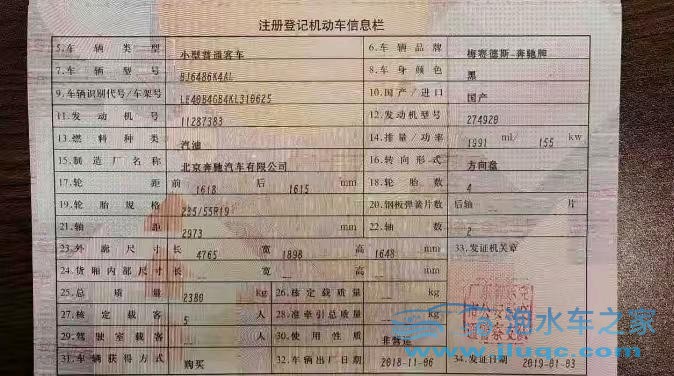 注册登记机动车信息栏
5.车辆类型 小型普通客车 6.车辆品牌 梅赛德斯-奔驰牌
7.车辆型号 BJ6486K4AL 8.车身颜色 黑
9.车辆识别代号/车架号 10.国产/进口 国产
11.发动机号 11287383 12.发动机型号 274920
13.燃料种类 汽油 14.排量/功率 1991 ml/ 155 kw
15.制造厂名称 北京奔驰汽车有限公司 16.转向形式 方向盘
17.轮距 前 1618 后 1615 mm 18.轮胎数 4
19.轮胎规格 235/55R19 20.钢板弹簧片数 后轴 — 片
21.轴距 2973 mm 22.轴数 2
23.外廓尺寸 长 4765 宽 1898 高 1648 mm 33.发证机关章
24.货厢内部尺寸 长 — 宽 — 高 — mm
25.总质量 2380 kg 26.核定载质量 — kg
27.核定载客 5 人 28.准牵引总质量 — kg
29.驾驶室载客 — 人 30.使用性质 非营运
31.车辆获得方式 购买 32.车辆出厂日期 2018-11-06 34.发证日期 2019-01-03
泡水车之家